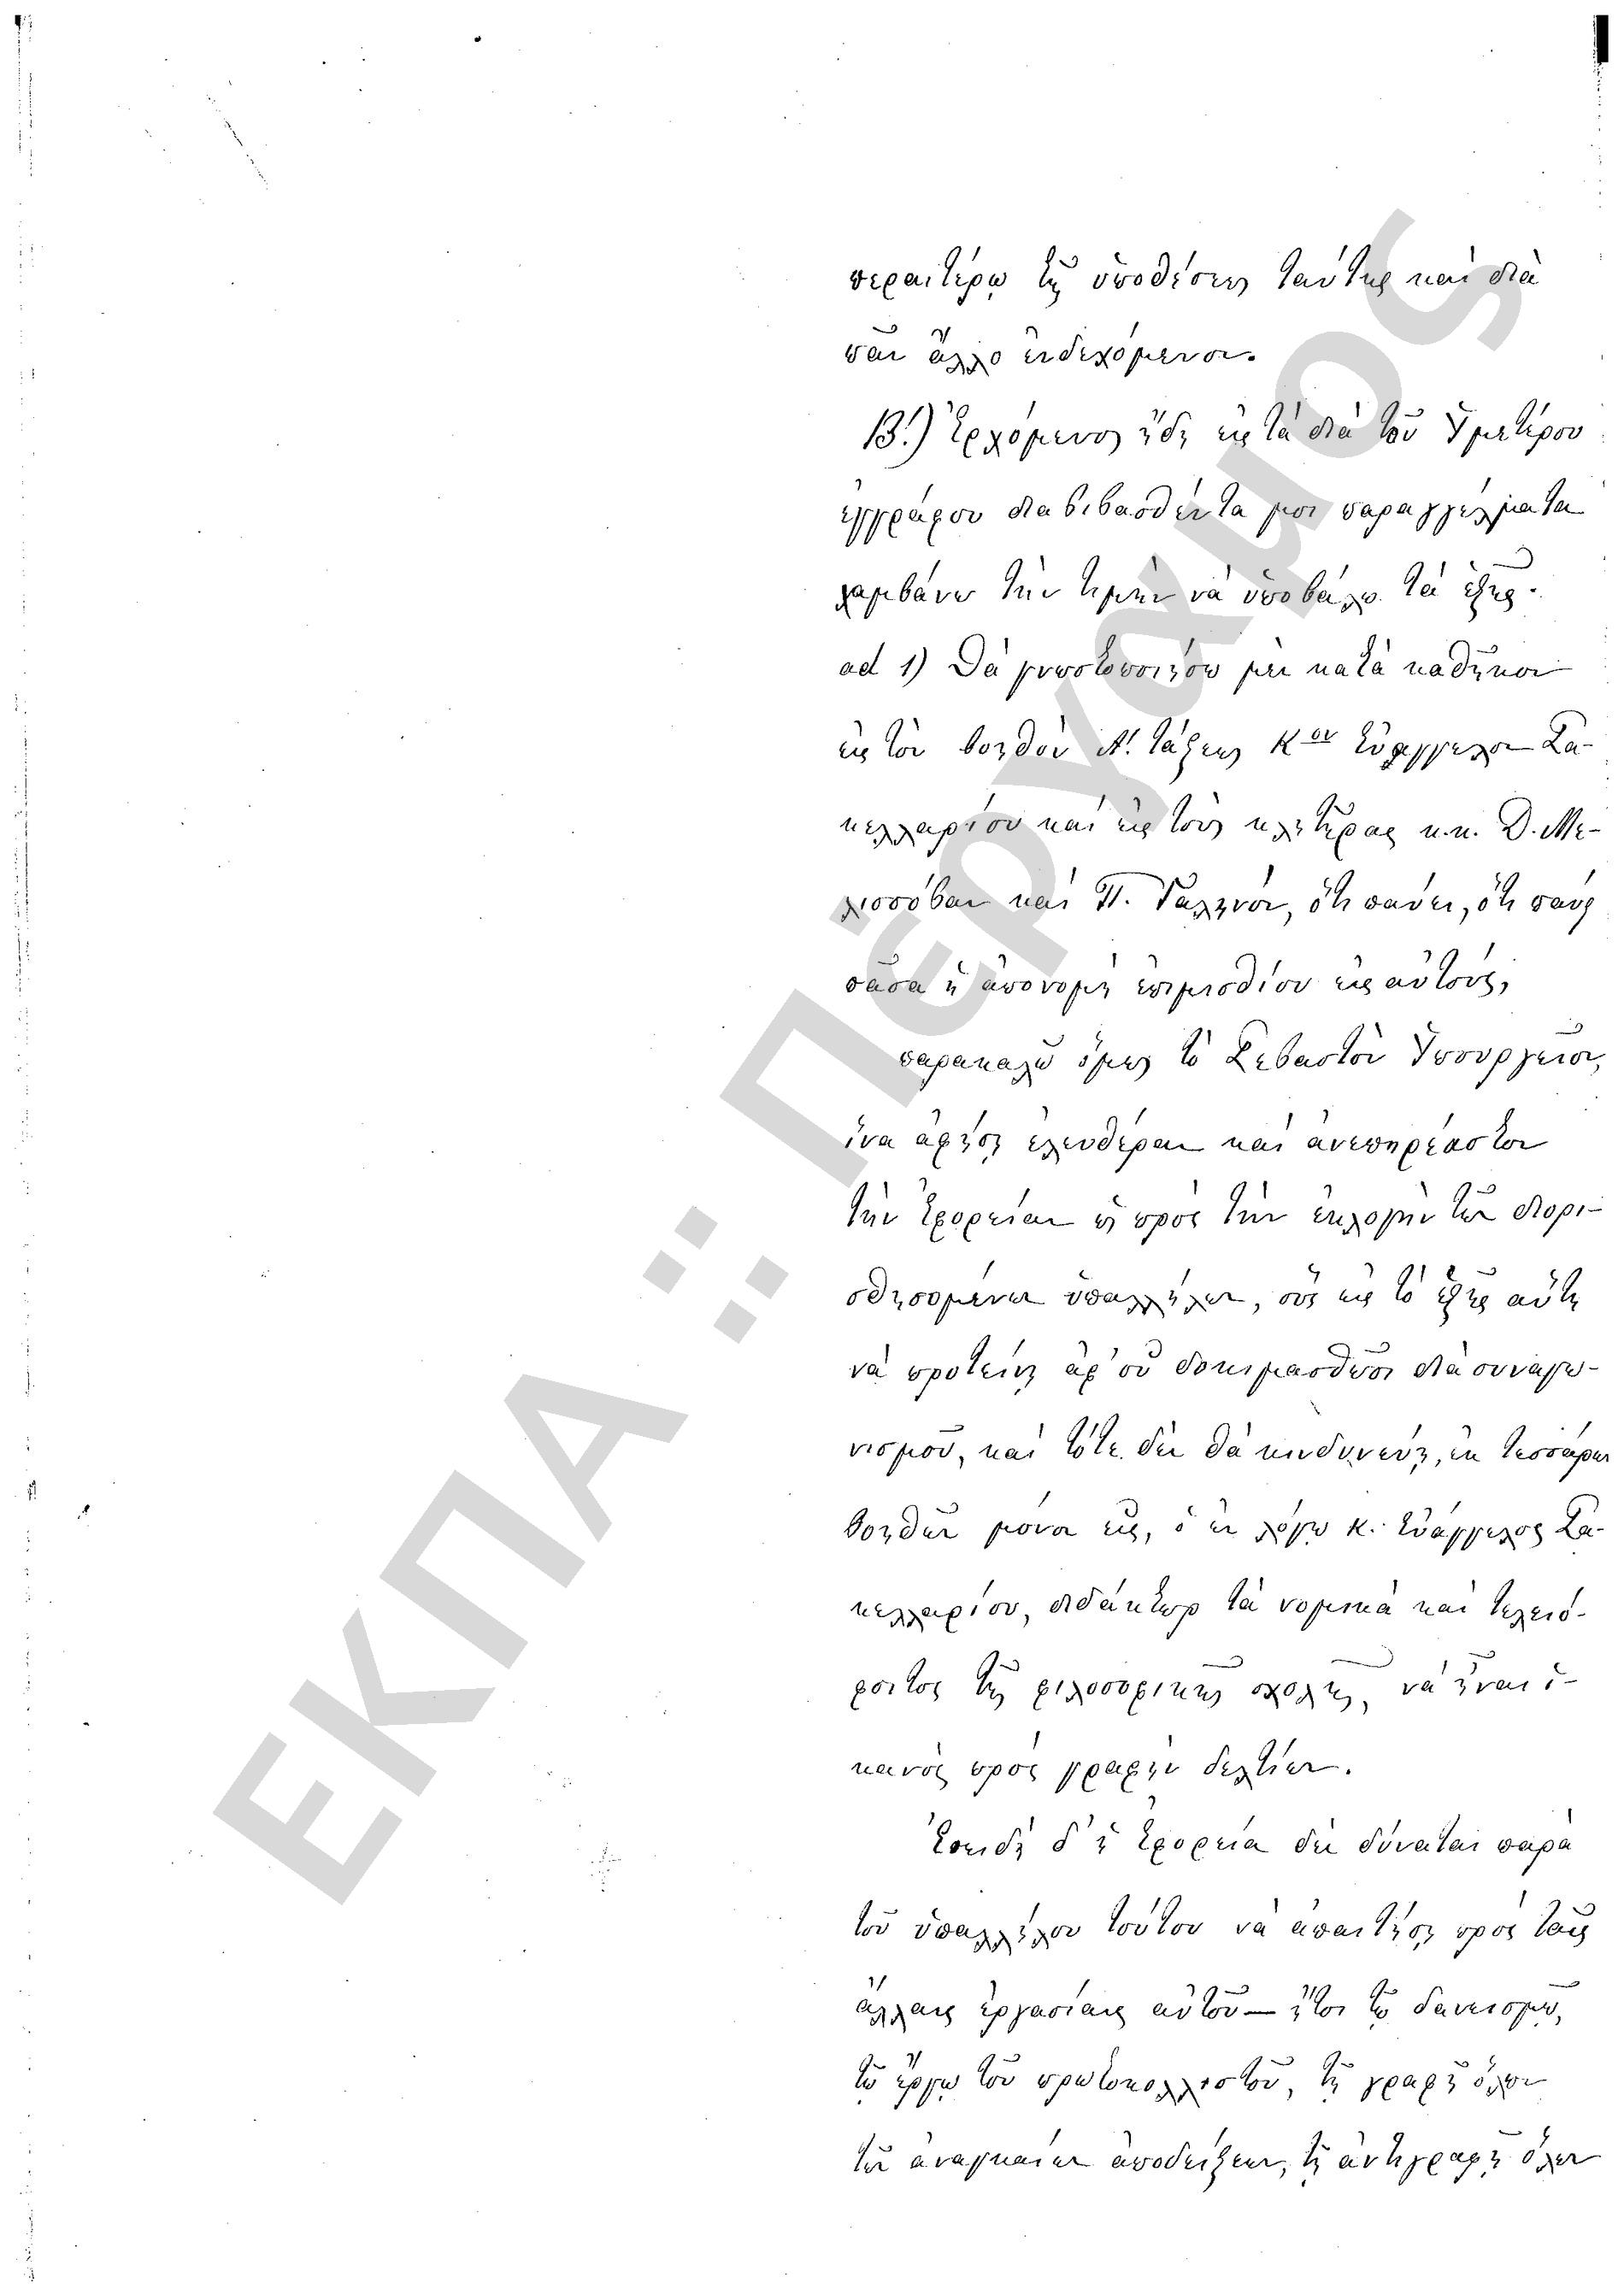 περαιτέρω τῆς ὑποθέσεως ταύτης καὶ διὰ
πᾶν ἄλλο ἐνδεχόμενον.
Β.) Ἐρχόμενος ἤδη εἰς τὰ διὰ τοῦ Ὑμετέρου
ἐγγράφου διαβιβασθέντα μοι παραγγέλματα
λαμβάνω τὴν τιμὴν νὰ ὑποβάλω τὰ ἑξῆς.
ad 1) Θὰ γνωστοποιήσω μὲν κατὰ καθῆκον
εἰς τὸν βοηθὸν Α΄. τάξεως Κον Εὐάγγελον Σα-
κελλαρίου καὶ εἰς τοὺς κλητῆρας κ.κ. Δ. Με-
λισσόβαν καὶ Π. Γαληνόν, ὅτι παύει, ὅτι παύει
πᾶσα ἡ ἀπονομὴ ἐπιμισθίου εἰς αὐτούς,
παρακαλῶ ὅμως τὸ Σεβαστὸν Ὑπουργεῖον,
ἵνα ἀφήσῃ ἐλευθέραν καὶ ἀνεπηρέαστον
τὴν Ἐφορείαν ὡς πρὸς τὴν ἐκλογὴν τῶν διορι-
σθησομένων ὑπαλλήλων, οὓς εἰς τὸ ἑξῆς αὕτη
νὰ προτείνῃ ἀφ' οὗ δοκιμασθῶσι διὰ συναγω-
νισμοῦ, καὶ τότε δὲν θὰ κινδυνεύῃ, ἐκ τεσσάρων
βοηθῶν μόνον εἷς, ὁ ἐν λόγῳ κ. Εὐάγγελος Σα-
κελλαρίου, διδάκτωρ τὰ νομικὰ καὶ τελειό-
φοιτος τῆς φιλοσοφικῆς σχολῆς, νὰ ἦναι ἱ-
κανὸς πρὸς γραφὴν δελτίων.
Ἐπειδὴ δ' ἡ Ἐφορεία δὲν δύναται παρὰ
τοῦ ὑπαλλήλου τούτου νὰ ἀπαιτήσῃ πρὸς ταῖς
ἄλλαις ἐργασίαις αὐτοῦ — ἤτοι τῷ δανεισμῷ,
τῷ ἔργῳ τοῦ πρωτοκολλιστοῦ, τῇ γραφῇ ὅλων
τῶν ἀναγκαίων ἀποδείξεων, τῇ ἀντιγραφῇ ὅλων
ΕΚΠΑ :: Πέργαμος